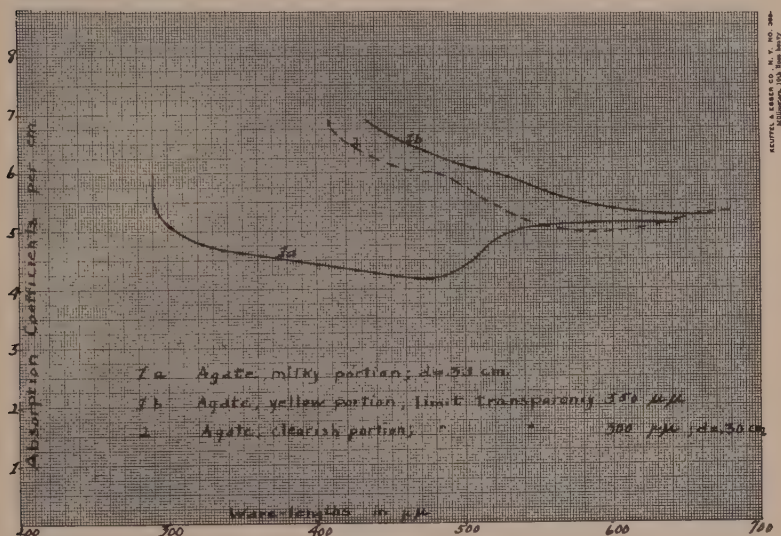 KEUFFEL & ESSER CO., N. Y. NO.
8
7
6
5
4
3
2
1
Absorption Coefficients per cm.
1b
2
1a
1a Agate, milky portion; d=.33 cm.
1b Agate, yellow portion, limit transparency 350 μμ
2 Agate, clearish portion; " " 300 μμ; d=.30 cm
Wave-lengths in μμ
300 400 500 600 700